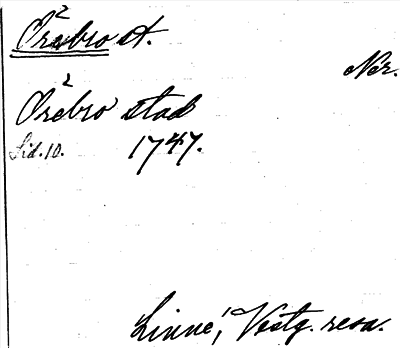 Örebro st.
När.
Örebro stad
Sid. 10. 1747.
Linné, Vestg. resa.